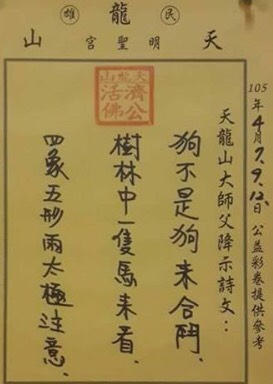 民 龍 雄
天 明聖宮 山
天龍山
濟公
活佛
105年4月7.9.12.日公益彩卷提供參考
天龍山大師父降示詩文：
狗不是狗来合鬥、
樹林中一隻馬来看、
四象五形兩太極注意、